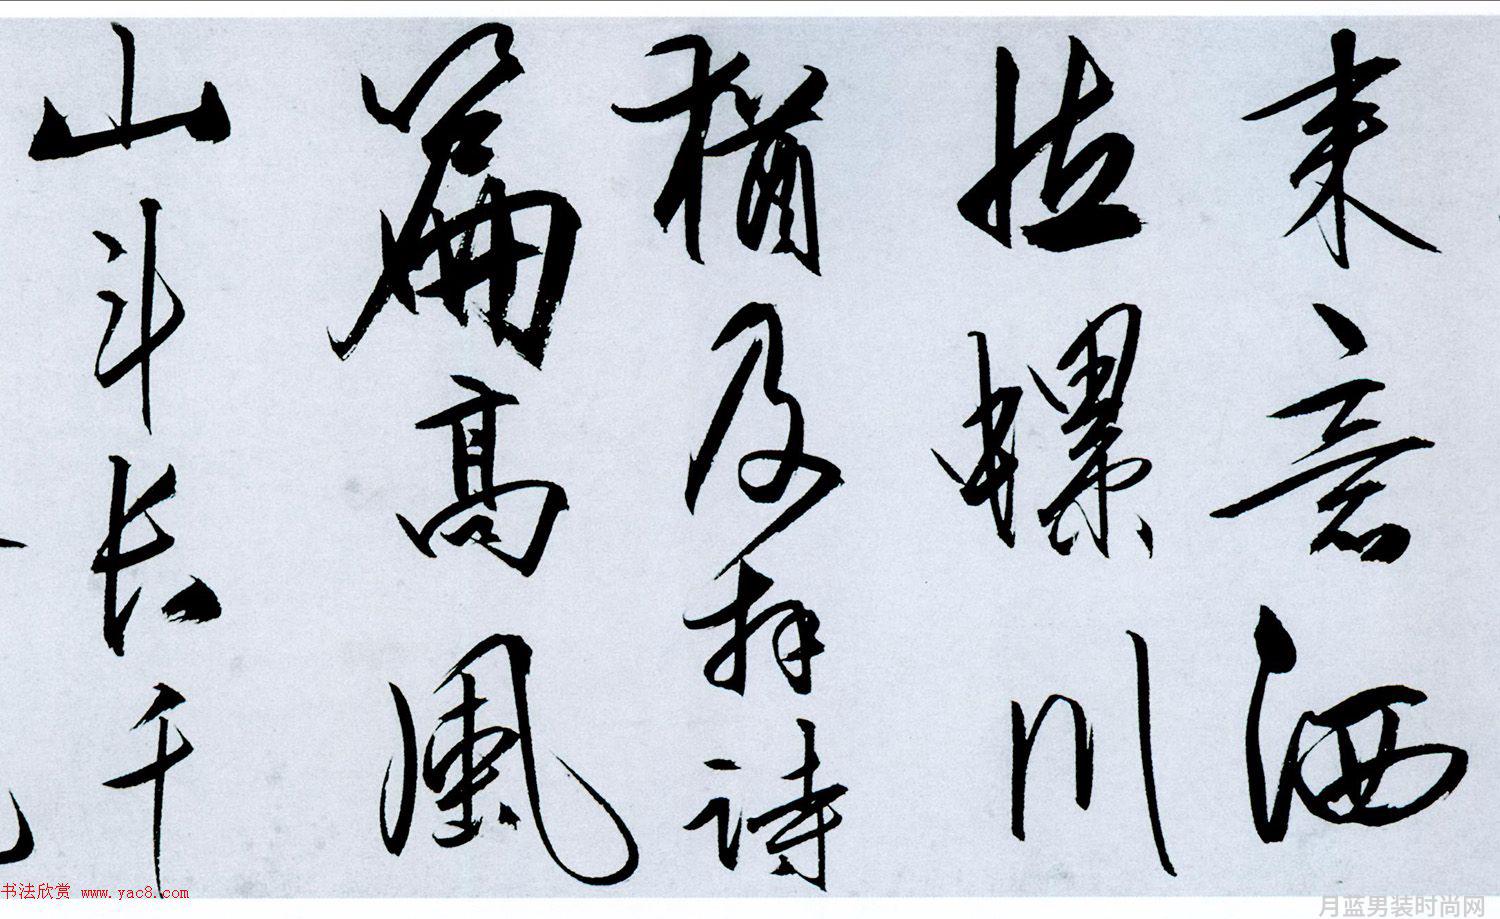 来意洒
螺川
猶及拜诗
篇高風
山斗长千
书法欣赏 www.yac8.com
月蓝男装时尚网